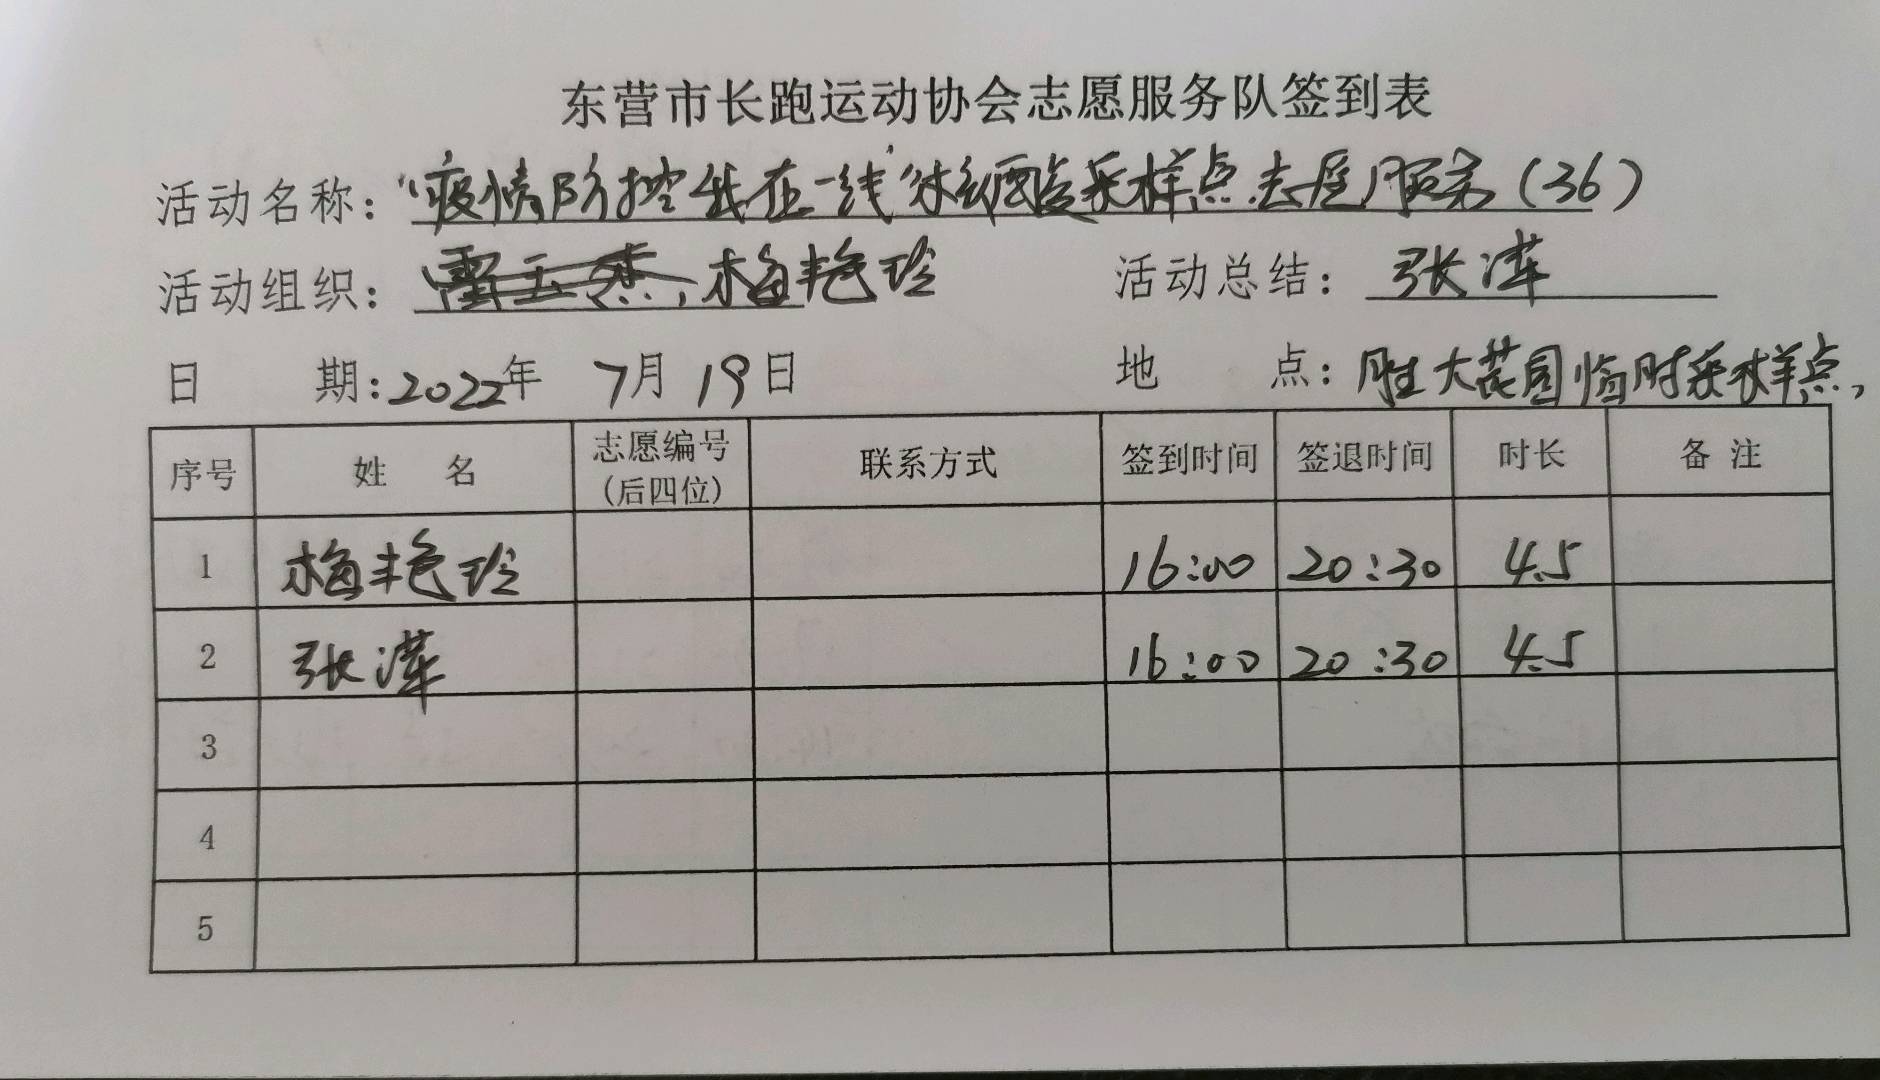 东营市长跑运动协会志愿服务队签到表
活动名称：“疫情防控我在一线”核酸采样点志愿服务（36）
活动组织：梅艳玲 活动总结：张萍
日 期：2022年 7月 19日 地 点：胜大花园临时采样点，
序号 姓 名 志愿编号（后四位） 联系方式 签到时间 签退时间 时长 备 注
1 梅艳玲 16:00 20:30 4.5
2 张萍 16:00 20:30 4.5
3
4
5